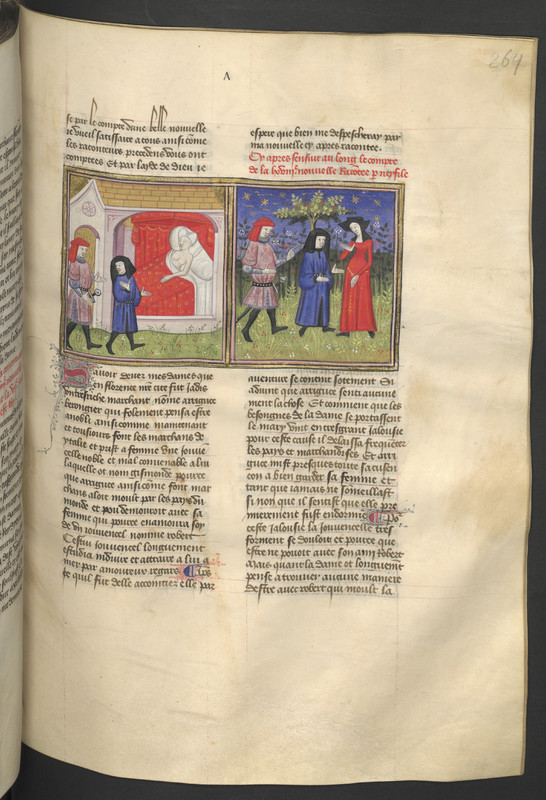 264
A
se par le compte dune belle nouuelle
ie vueil satisfaire a tous ainsi come
les raconteurs precedens vous ont
comptees. Et par layde de dieu ie
espere que bien me despescheray par
ma nouuelle cy apres racontee.
Cy apres sensuit au long le compte
de la nouuelle Racotee p neyfile
Sauoir deuez mes dames que
en florence nre cite fut iadis
vng riche marchant nome arriguce
berlinguier qui folement pensa estre
noble ainsi comme maintenant
et tousiours font les marchans de
ytalie et prist a femme vne iouuen
celle noble et mal conuenable a luy
laquelle ot nom sigismonde pource
que arriguce ainsi come font mar
chans aloit moult par les pays du
monde et pou demouroit auec sa
femme qui pource enamoura soy
de vn iouuencel nomme robert
Cestui iouuencel longuement
estudia induire et attraire a lui a
mer par amoureux regars Apres
ce quil fut delle acointie elle par
auenture se contint sotement. Si
aduint que arriguce senti aucune
ment la chose. Et comment que les
besongnes de la dame se portassent
le mary vint en tresgrant ialousie
pour ceste cause il delaissa frequenter
les pays et marchandises. Et arri
guce mist presques toute sa cusen
con a bien garder sa femme et
tant que iamais ne someillast
si non que il sentist que elle pre
mierement fust endormie Po
ceste ialousie la iouuencelle tres
forment se douloit et pource que
estre ne pouoit auec son ami robert
Mais quant la dame ot longuement
pense a trouuer aucune maniere
destre auec robert qui moult la